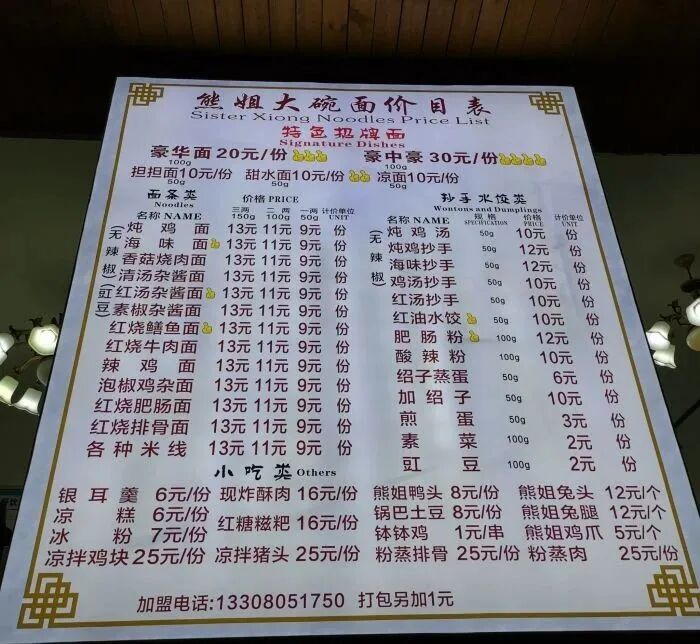 熊姐大碗面价目表
Sister Xiong Noodles Price List
特色招牌面
Signature Dishes
豪华面20元/份 豪中豪30元/份
100g 100g
担担面10元/份 甜水面10元/份 凉面10元/份
50g 50g 50g
面条类
Noodles
价格PRICE
名称NAME 三两 二两 一两 计价单位
150g 100g 50g UNIT
(无辣椒)
炖鸡面 13元 11元 9元 份
海味面 13元 11元 9元 份
香菇烧肉面 13元 11元 9元 份
清汤杂酱面 13元 11元 9元 份
(豇豆)
红汤杂酱面 13元 11元 9元 份
素椒杂酱面 13元 11元 9元 份
红烧鳝鱼面 13元 11元 9元 份
红烧牛肉面 13元 11元 9元 份
辣鸡面 13元 11元 9元 份
泡椒鸡杂面 13元 11元 9元 份
红烧肥肠面 13元 11元 9元 份
红烧排骨面 13元 11元 9元 份
各种米线 13元 11元 9元 份
抄手水饺类
Wontons and Dumplings
名称NAME 规格 价格 计价单位
SPECIFICATION PRICE UNIT
(无辣椒)
炖鸡汤 50g 10元 份
炖鸡抄手 50g 12元 份
海味抄手 50g 12元 份
鸡汤抄手 50g 10元 份
红汤抄手 50g 10元 份
红油水饺 50g 10元 份
肥肠粉 100g 12元 份
酸辣粉 100g 10元 份
绍子蒸蛋 50g 6元 份
加绍子 50g 10元 份
煎蛋 50g 3元 份
素菜 100g 2元 份
豇豆 100g 2元 份
小吃类 Others
银耳羹 6元/份 现炸酥肉 16元/份 熊姐鸭头 8元/份 熊姐兔头 12元/个
凉糕 6元/份 红糖糍粑 16元/份 锅巴土豆 8元/份 熊姐兔腿 12元/个
冰粉 7元/份 钵钵鸡 1元/串 熊姐鸡爪 5元/个
凉拌鸡块 25元/份 凉拌猪头 25元/份 粉蒸排骨 25元/份 粉蒸肉 25元/份
加盟电话:13308051750 打包另加1元